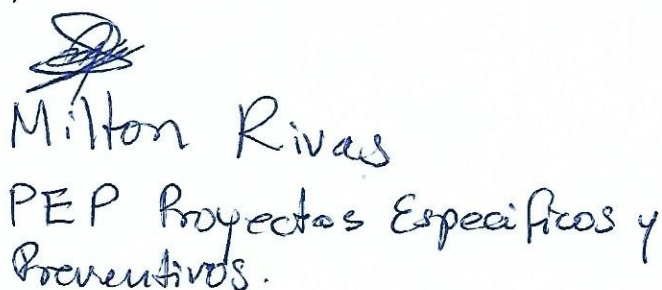 Milton Rivas
PEP Proyectos Especificos y
Preventivos.